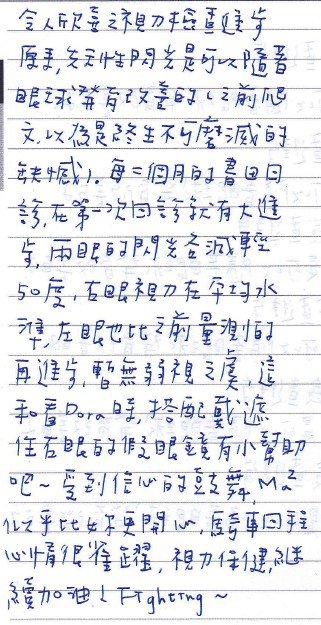 令人欣喜之視力檢查進步
原來,先天性閃光是可以隨著
眼球發育改善的(之前爬
文,以後是終生不可磨滅的
缺憾)。每二個月的書田回
診,在第一次回診就有大進
步,兩眼的閃光各減輕
50度,右眼視力在平均水
準,左眼也比之前量測的
再進步,暫無弱視之虞,這
和看Dora時,搭配戴遮
住右眼的假眼鏡有小幫助
吧~受到信心的鼓舞,Ma²
似乎比女更開心,騎車回程
心情很雀躍,視力保健,繼
續加油!Fighting~